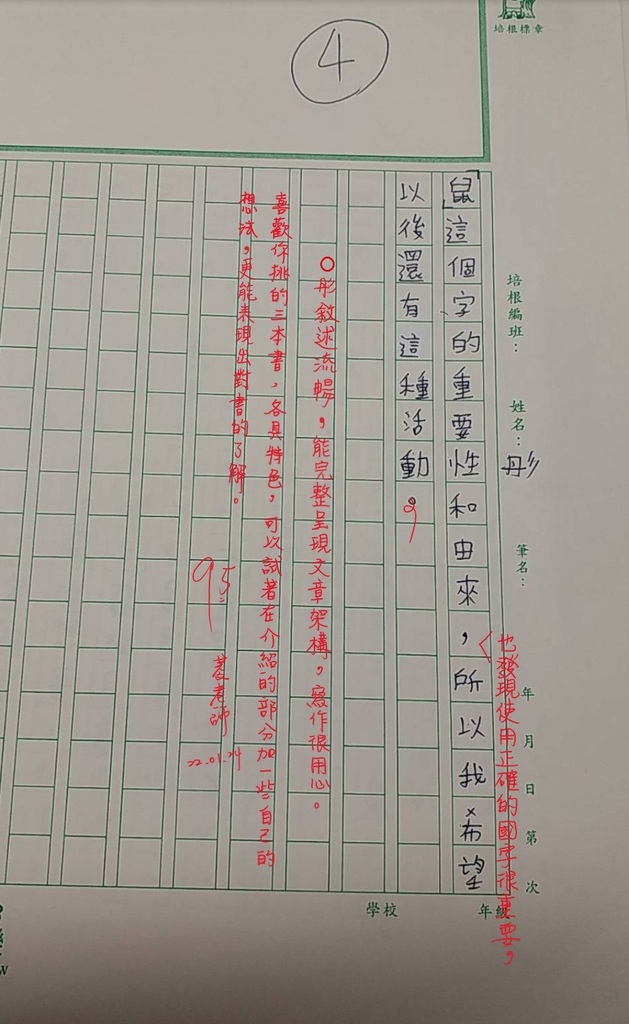 培根標章
④
培根編班：
姓名：彤
筆名：
年月日第次
學校
年級
「鼠」這個字的重要性和由來，所以我希望
也發現使用正確的國字很重要，
以後還有這種活動。
○彤敘述流暢，能完整呈現文章架構，寫作很用心。
喜歡你挑的三本書，各具特色，可以試著在介紹的部分加一些自己的
想法，更能表現出對書的了解。
95
老師
22.01.24